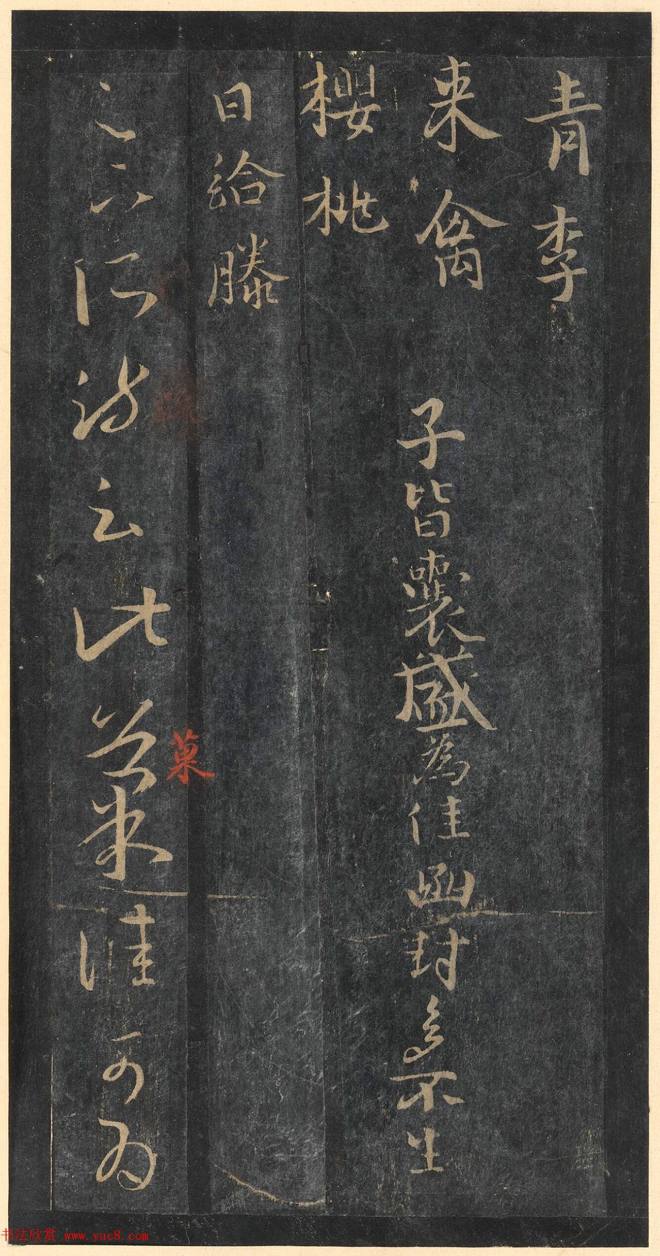 青李
来禽
櫻桃
日給滕
子皆囊盛為佳函封多不生
足下所疏云此菓佳可為
菓
书法欣赏 www.yuc8.com